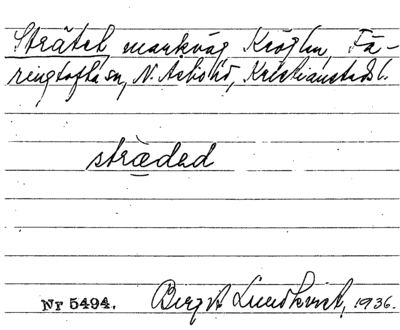 Strätet markväg Kröglin, Fä-
ringtofta sn, N. Åsbo hd, Kristianstads l.
strædəd
Nr 5494. Birgit Lundkvist, 1936.